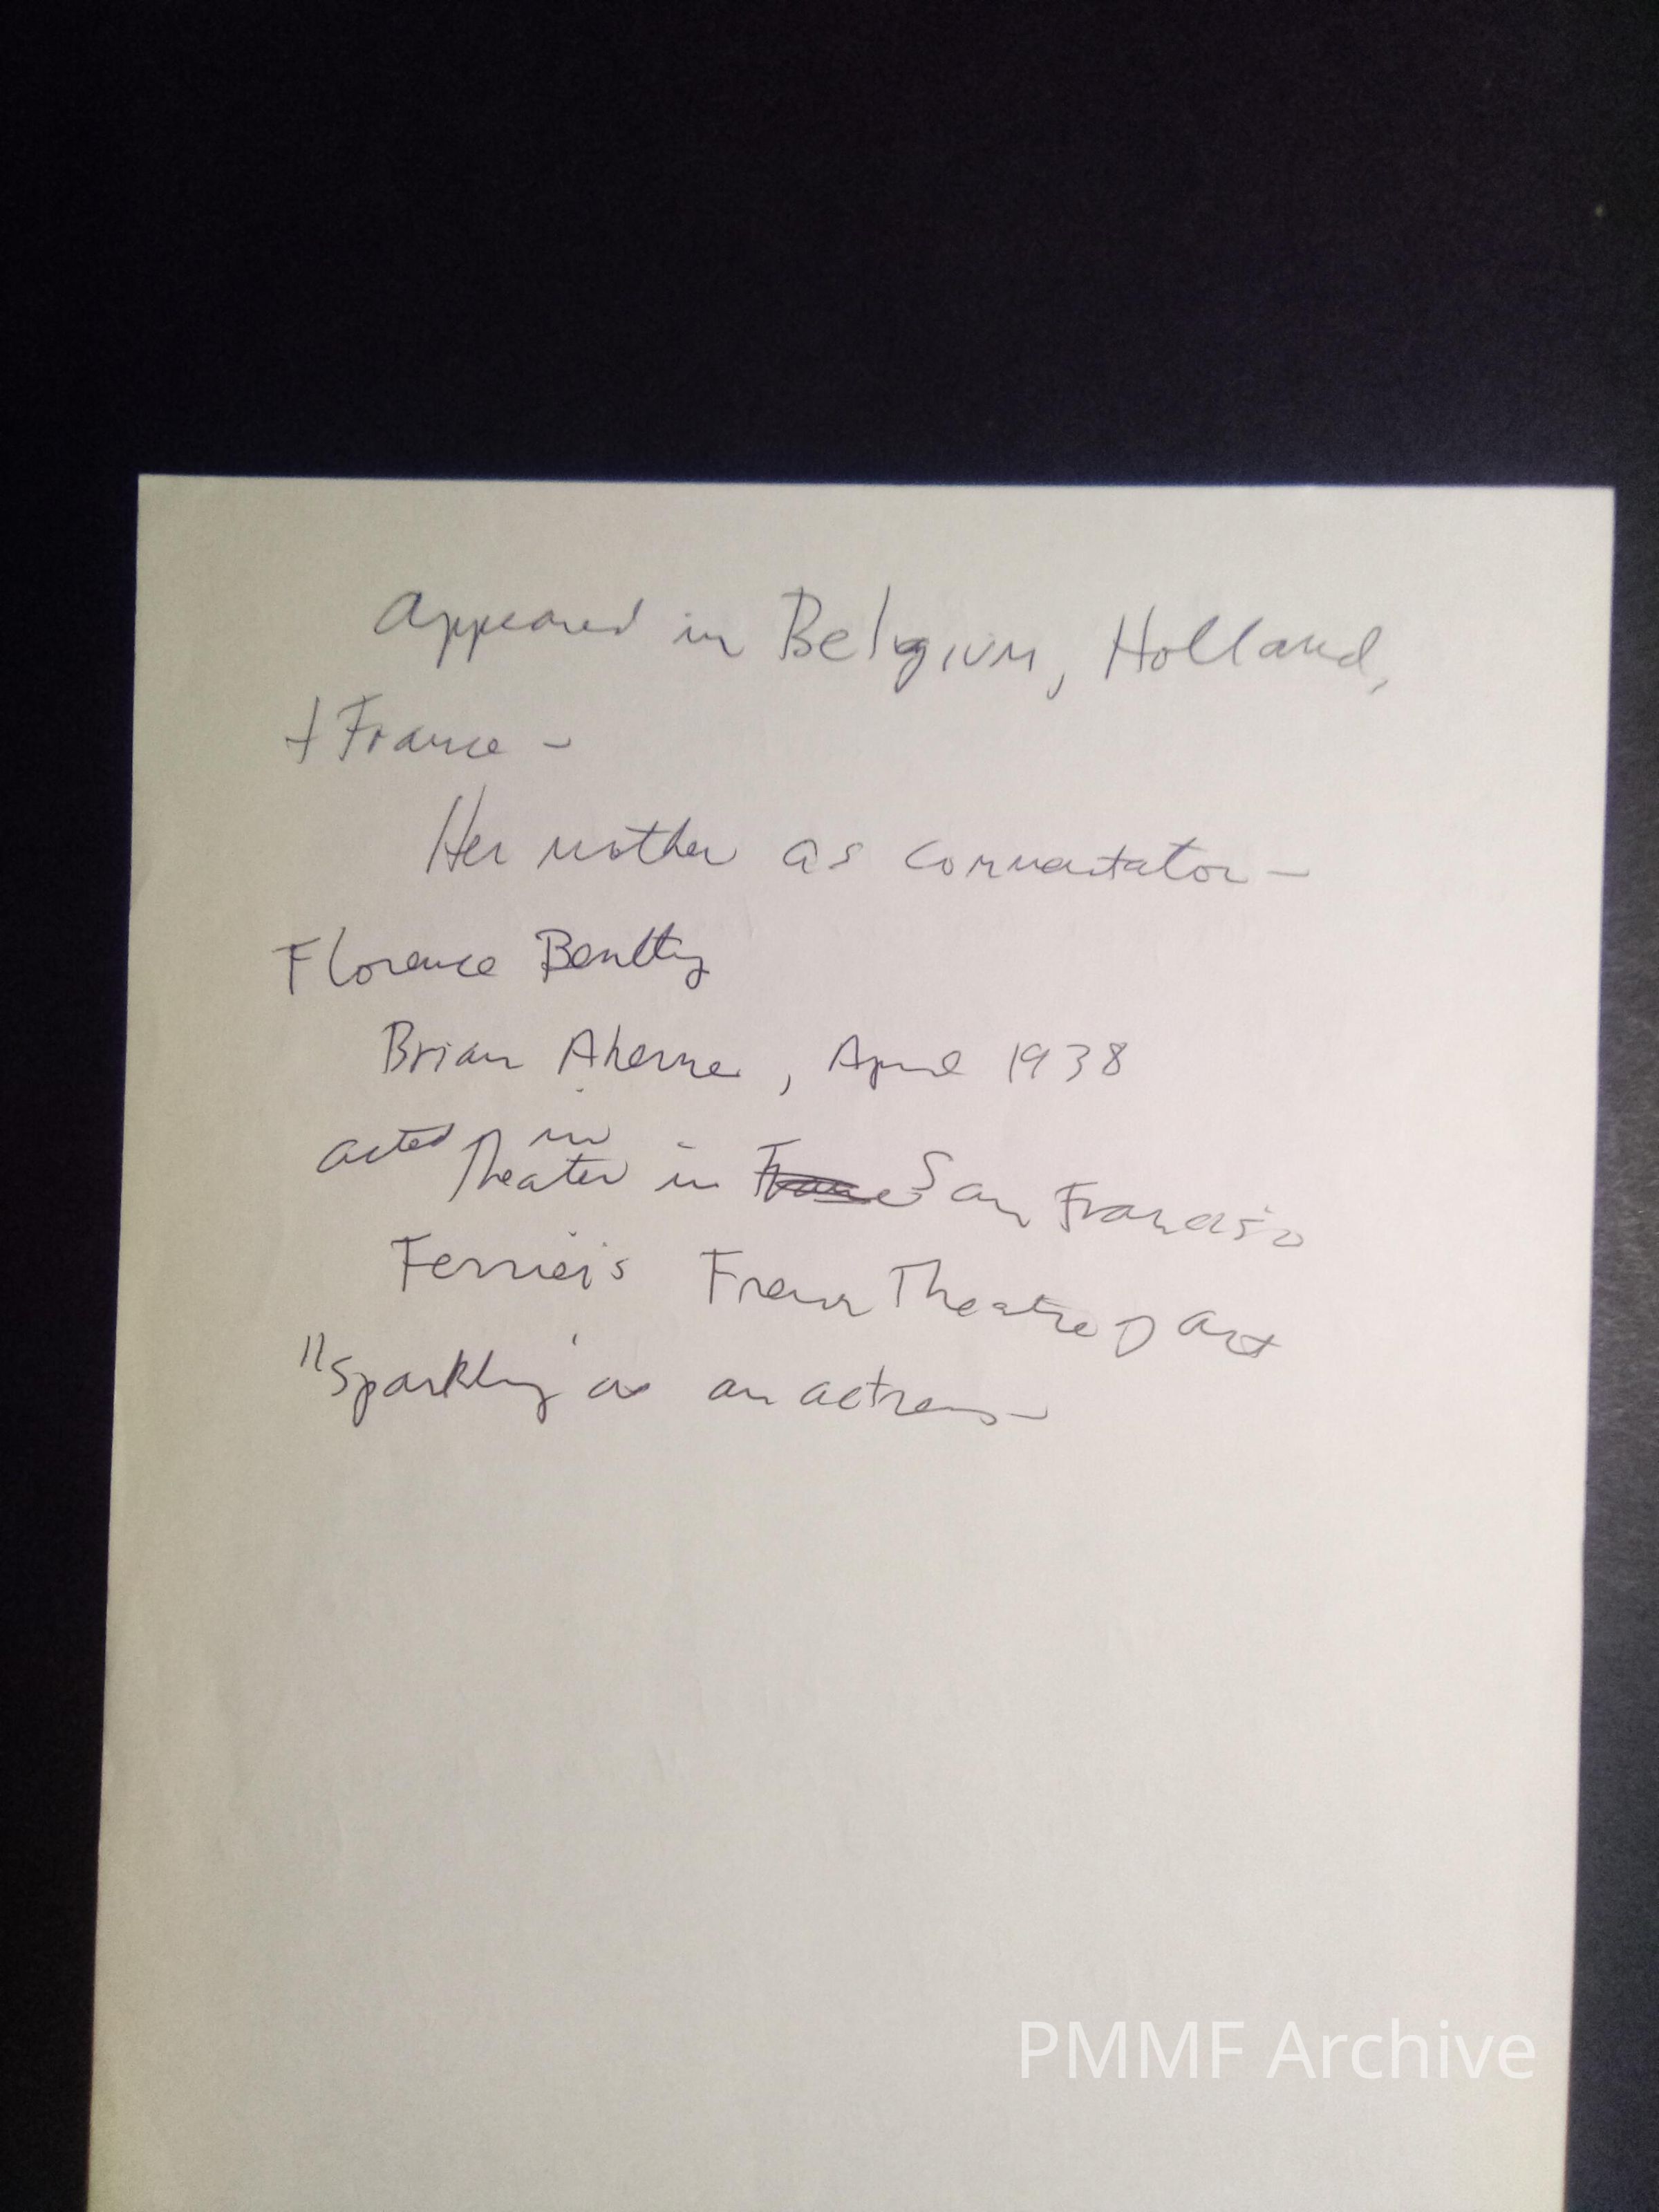 Appeared in Belgium, Holland,
+ France -
Her mother as commentator -
Florence
Brian Aherne, April 1938
acted in
Theater in San Francisco
Ferrier's French Theatre of Art
"Sparkling" as an actress -
PMMF Archive